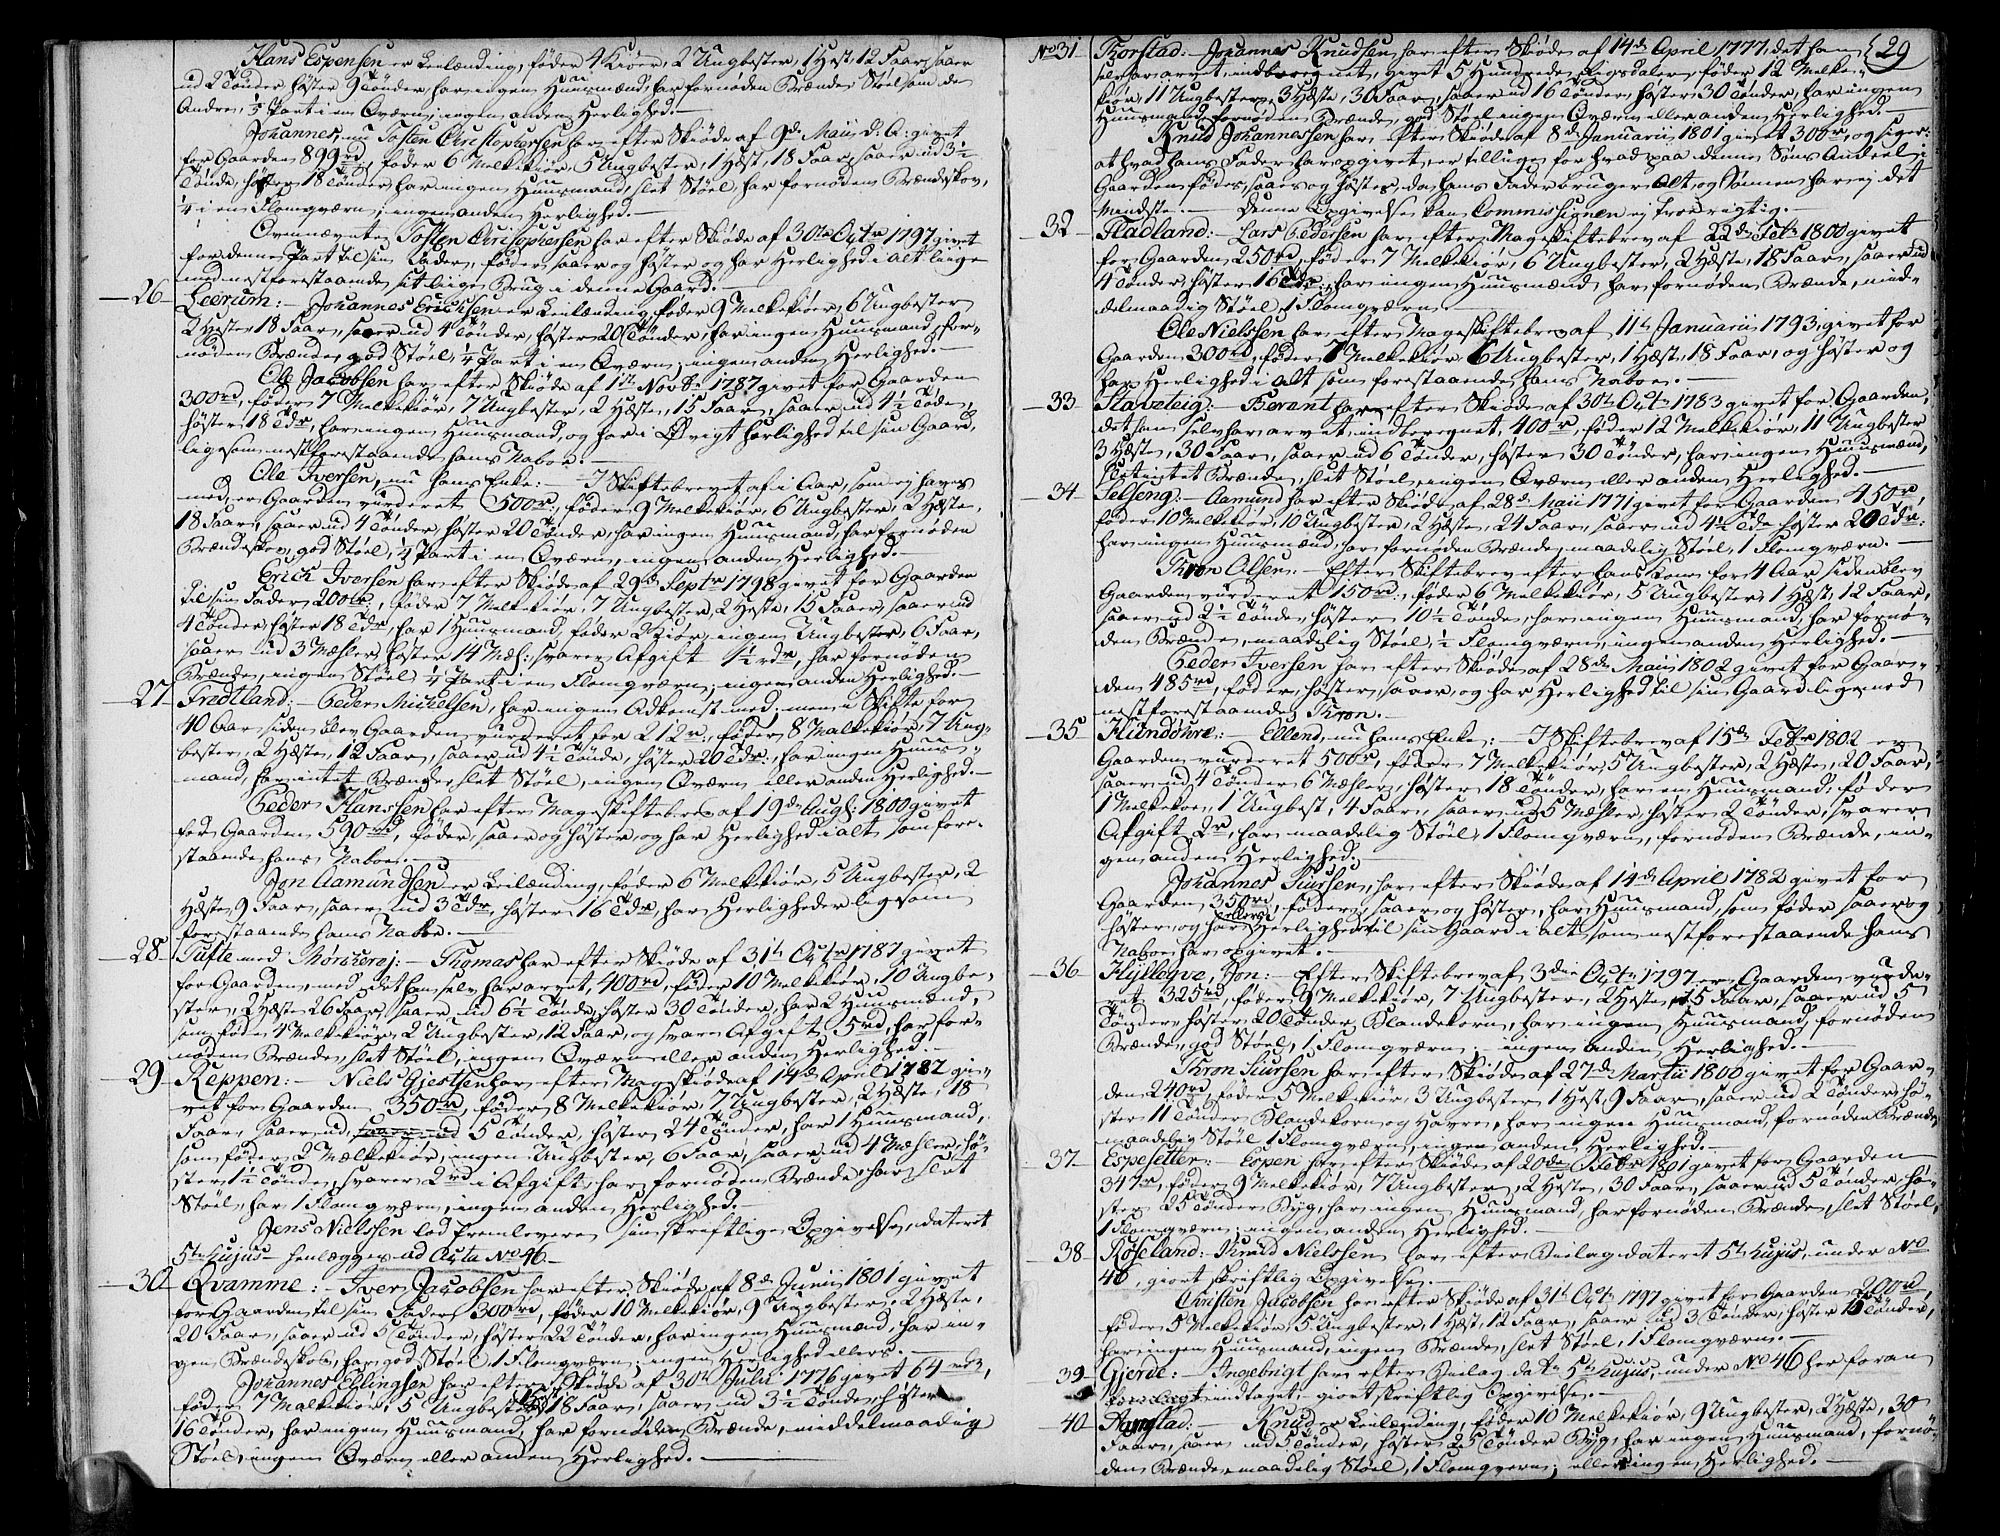 Hans Espensen er Leilænding, føder 4 Kiøer, 2 Ungbester, 1 Hest, 12 Faar, saaer
ud 2 Tønder, høster 9 Tønder, har ingen Huusmænd, har fornøden Brænde, Støel som de
Andre, Part i en Qværn, ingen anden Herlighed.
Johannes, nu Tosten Christophersen har efter Skiøde af 9de Maii d: A: givet
for Gaarden 899rd, føder 6 Melkekiør, 5 Ungbester, 1 Hæst, 18 Faar, saaer ud 3½
Tønde, høster 18 Tønder, har ingen Huusmand, slet Støel, har fornøden Brændeskov,
¼ i en Flomqværn, ingen anden Herlighed.
Ovennævnte Tosten Christophersen har efter Skiøde af 30te Octr 1797 givet
for denne Part til sin Fader, føder, saaer og høster og har Herlighed i alt liige
med nestforestaaende sit liige Brug i denne Gaard.
26 Leerum: Johannes Erichsen er Leilænding, føder 9 Melkekiør, 6 Ungbester
2 Hester 18 Faar, saaer ud 4 Tønder, høster 20 Tønder, har ingen Huusmand, for-
nøden Brænde, god Støel, ¼ Part i en Qværn, ingen anden Herlighed.
Ole Jacobsen har efter Skiøde af 1ste Novbr 1787 givet for Gaarden
300rd, føder 7 Melkekiør, 7 Ungbester, 2 Hæste, 15 Faar, saaer ud 4½ Tønde,
høster 18 Tdr, har ingen Huusmand, og har i Øvrigt Herlighed til sin Gaard,
ligesom nestforestaaende hans Naboe.
Ole Iversen, nu hans Enke: I Skiftebrevet af i Aar, som ej haves
med, er Gaarden vurderet 500r, føder 9 Melkekiør, 6 Ungbester, 2 Hæste,
18 Faar, saaer ud 4 Tønder, høster 20 Tønder, har ingen Huusmand, har fornøden
Brændeskov, god Støel, ¼ Part i en Qværn, ingen anden Herlighed.
Erich Iversen har efter Skiøde af 29de Septr 1798 givet for Gaarden
til sin Fader 200r, føder 7 Melkekiør, 7 Ungbester, 2 Hæste, 15 Faar, saaer ud
4 Tønder, høster 18 Tdr, har 1 Huusmand, føder 2 Kiør, ingen Ungbester, 6 Faar,
saaer ud 3 Mæhler, høster 14 Mæh:, svarer Afgift 1½ rdr, har fornøden
Brænde, ingen Støel ¼ Part i en Flomqværn, ingen anden Herlighed.
27 Frødtland: Peder Michelsen, har ingen Adkomst med, men i Skifte for
40 Aar siden blev Gaarden vurderet for 212r, føder 8 Malkekiør, 7 Ung-
bester, 2 Hæste, 12 Faar, saaer ud 4½ Tønde, høster 20 Tdr:, har ingen Huus-
mand, har intet Brænde, slet Støel, ingen Qværn eller anden Herlighed.
Peder Hanssen har efter Mageskiftebrev af 19de Augs: 1800 givet
for Gaarden 590rd, føder, saaer og høster, og har Herlighed i alt som fore-
staaende hans Naboe.
Jon Aamundsen er Leilænding, føder 6 Melkekiør, 5 Ungbester, 2
Hæste, 9 Faar, saaer ud 3 Tdr, høster 16 Tdr, har Herligheder ligesom
forestaaende hans Naboe.
28 Tufte med Mørcherej: Thomas har efter Skiøde af 31te Octr 1787 givet
for Gaarden, med det han selv har arvet, 400rd, føder 10 Melkekiør, 10 Ungbe-
ster, 2 Hæste 26 Faar, saaer ud 6½ Tønde, høster 30 Tønder, har 2 Huusmænd,
som føder 4 Melkekiør, 2 Ungbester, 12 Faar, og svarer Afgift 5rd, har for-
nøden Brænde, slet Støel, ingen Qværn eller anden Herlighed.
29 Reppen: Niels Gjestsen har efter Mageskiøde af 14de April 1782 gi-
vet for Gaarden 350rd, føder 8 Melkekiør, 7 Ungbester, 2 Hæste, 18
Faar, saaer ud, saaer ud 5 Tønder, høster 24 Tønder, har 1 Huusmand,
som føder 2 Melkekiør, ingen Ungbester, 6 Faar, saaer ud 4 Mæhler, hø-
ster 1½ Tønde, svarer 2rd i Afgift, har fornøden Brænde, har slet
Støel, har 1 Flomqværn, ingen anden Herlighed.
Jens Nielssen lod fremlevere sin skriftlige Opgivelse, dateret
5te hujus henlægges ad Acta No 46.
30 Qvamme: Iver Jacobsen har efter Skiøde af 8de Junii 1801 givet
for Gaarden til sin Fader 300rd, føder 10 Melkekiør, 9 Ungbester, 2 Hæste,
20 Faar, saaer ud 5 Tønder, høster 22 Tønder, har ingen Huusmænd, har in-
gen Brændeskov, har god Støel, 1 Flomqværn, ingen Herlighed ellers.
Johannes Ellingsen har efter Skiøde af 30te Julii 1776 givet 64 rdr,
føder 7 Malkekiør, 5 Ungbester, 1 Hest, 18 Faar, saaer ud 3½ Tønde, høster
16 Tønder, har ingen Huusmand, har fornøden Brænde, middelmaadig
Støel, ingen Qværn eller anden Herlighed.
29
No 31 Thorstad: Johannes Knudsen har efter Skiøde af 14de April 1777, det han
selv har arvet indberegnet, givet 5 Hundrede Rigsdaler, føder 12 Melke-
kiør, 11 Ungbester, 3 Hæste, 30 Faar, saaer ud 16 Tønder, høster 30 Tønder, har ingen
Huusmand, fornøden Brænde, god Støel, ingen Qværn eller anden Herlighed.
Knud Johannessen har efter Skiøde af 8de Januarii 1801 givet 300r, og siger:
at hvad hans Fader har opgivet, er tillige for hvad paa denne Søns Andeel i
Gaarden fødes, saaes og høstes, da hans Fader bruger Alt, og Sønnen har ej det
Mindste. Denne Opgivelse kan Commissionen ej troe rigtig.
32 Fladland: Lars Pedersen har efter Mageskiftebrev af 22de Febr 1800 givet
for Gaarden 250rd, føder 7 Melkekiør, 6 Ungbester, 2 Hæste, 18 Faar, saaer ud
4 Tønder, høster 16 Tdr, har ingen Huusmænd, har fornøden Brænde, mid-
delmaadig Støel, 1 Flomqværn.
Ole Nielssen har efter Mageskiftebrev af 11te Januarii 1793 givet for
Gaarden 300rd, føder 7 Melkekiør, 6 Ungbester, 1 Hæst, 18 Faar, og høster og
har Herlighed i alt som forestaaende hans Naboe.
33 Slaveteig: Berent har efter Skiøde af 30te Octr 1783 givet for Gaarden,
det han selv har arvet indberegnet, 400r, føder 12 Melkekiør, 11 Ungbester
3 Hæste, 30 Faar, saaer ud 6 Tønder, høster 30 Tønder, har ingen Huusmænd,
slet intet Brænde, slet Støel, ingen Qværn eller anden Herlighed.
34 Selseng: Aamund har efter Skiøde af 28de Maii 1771 givet for Gaarden 450r,
føder 10 Melkekiør, 10 Ungbester, 2 Hæste, 24 Faar, saaer ud 4½ Tde, høster 20 Tdr:
har ingen Huusmænd, har fornøden Brænde, maadelig Støel, 1 Flomqværn.
Thron Olsen: Efter Skiftebrev efter hans Kone for 4 Aar siden blev
Gaarden vurderet 150rd, føder 6 Melkekiør, 5 Ungbester, 1 Hæst, 12 Faar,
saaer ud 2½ Tønde, høster 10½ Tønde, har ingen Huusmand, har fornø-
den Brænde, maadelig Støel, ½ Flomqværn, ingen anden Herlighed.
Peder Iversen har efter Skiøde af 28de Maij 1802 givet for Gaar-
den 485rd, føder, høster, saaer, og har Herlighed til sin Gaard lige med
nestforestaaende Thron.
35 Hundøhre: Ellend, nu hans Enke: I Skiftebrev af 15de Febr 1802 er
Gaarden vurderet 500r, føder 7 Melkekiør, 5 Ungbester, 2 Hæste, 20 Faar,
saaer ud 4 Tønder 6 Mæhler, høster 18 Tønder, har en Huusmand, føder
1 Melkekoe, 1 Ungbest, 4 Faar, saaer ud 5 Mæhler høster 2 Tønder, svarer
Afgift 2r, har maadelig Støel, 1 Flomqværn, fornøden Brænde, in-
gen anden Herlighed.
Johannes Siursen, har efter Skiøde af 14de April 1782 givet for
Gaarden 350rd, føder, saaer og høster, har Huusmand, som føder saaer og
høster, og har ellers Herlighed til sin Gaard i alt som nestforestaaende hans
Naboe har opgivet.
36 Hyllegve, Jon: Efter Skiftebrev af 3die Octr 1797 er Gaarden vurde-
ret 325rd, føder 9 Melkekiør, 7 Ungbester, 2 Hæste, 15 Faar, saaer ud 5
Tønder, høster 20 Tønder Blandekorn, har ingen Huusmand, fornøden
Brænde, god Støel, 1 Flomqværn, ingen anden Herlighed.
Thron Siursen har efter Skiøde af 27de Martii 1800 givet for Gaar-
den 240rd, føder 5 Melkekiør, 3 Ungbester 1 Hest, 9 Faar, saaer ud 2 Tønder, hø-
ster 11 Tønder Blandekorn og Havre, har ingen Huusmand, fornøden Brænde
maadelig Støel 1 Flomqværn, ingen anden Herlighed.
37 Espesetter: Espen har efter Skiøde af 20de Febr 1801 givet for Gaarden
347r, føder 9 Melkekiør, 7 Ungbester, 2 Hæste, 30 Faar, saaer ud 5 Tønder, hø-
ster 25 Tønder Byg, har ingen Huusmand, har fornøden Brænde, slet Støel,
1 Flomqværn, ingen anden Herlighed.
38 Røseland: Knud Nielssen har efter Beilag dateret 5te hujus, under No
46, giort skriftlig Opgivelse.
Christen Jacobsen har efter Skiøde af 31te Octr 1797 givet for Gaarden 200rd,
føder 5 Melkekiør, 5 Ungbester, 1 Hæst, 12 Faar, saaer ud 3 Tønder, høster 15 Tønder,
har ingen Huusmand, ingen Brænde, slet Støel, 1 Flomqværn.
39 Gjerde: Ingebrigt har efter Beilag dat: 5te hujus, under No 46 her foran
indtaget, giort skriftlig Opgivelse.
40 Hamstad: Knud er Leilænding, føder 10 Melkekiør, 9 Ungbester, 2 Hæste, 30
Faar, saaer ud 5 Tønder, høster 25 Tønder Byg, har ingen Huusmand, fornø-
den Brænde, maadelig Støel, 1 Flomqværn, ellers ingen Herlighed.